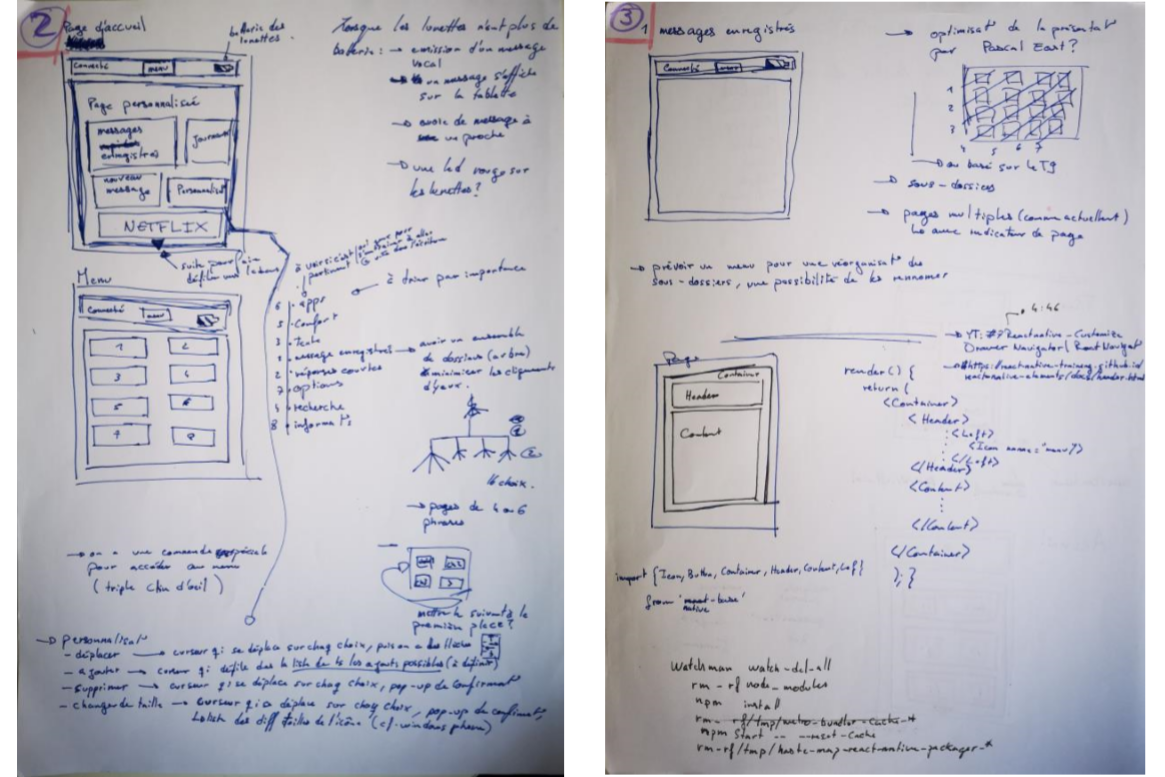 2
Page d'accueil
batterie des
lunettes.
Connecté menu
Page personnalisée
messages
enregistrés
Journaux
nouveau
message
Personnalisé
NETFLIX
suite pour faire
défiler vers le bas
Lorsque les lunettes n'ont plus de
batterie : → emission d'un message
vocal
→ un message s'affiche
sur la tablette
→ envoie de message à
un proche
→ une led rouge sur
les lunettes?
Menu
Connecté menu
1 2
3 4
5 6
7 8
→ à trier par importance
6 . apps
5 . Confort
3 . Texte
1 . message enregistrés → avoir un ensemble
de dossiers (arbre)
minimiser les clignements
d'yeux.
2 . réponses courtes
7 . options
4 . recherche
8 . informat°s
16 choix.
→ pages de 4 ou 6
phrases
mettre le suivant à la
première place?
→ on a une commande spéciale
pour accéder au menu
(triple clin d'oeil)
→ Personnalisat°
- déplacer → curseur qui se déplace sur chaq choix, puis on a des flèches
- ajouter → curseur qui défile dans la liste de ts les ajouts possibles (à définir)
- supprimer → curseur qui se déplace sur chaq choix, pop-up de confirmat°
- changer de taille → curseur qui se déplace sur chaq choix, pop-up de confirmat°,
↳ liste des diff tailles de l'icône (cf. windows phone)
3
1 messages enregistrés
Connecté menu
→ optimisat° de la présentat°
par Pascal East?
1
2
3
4 5 6 7
→ ou basé sur le T9
→ sous-dossiers
→ pages multiples (comme actuellent)
↳ avec indicateur de page
→ prévoir un menu pour une réorganisat° des
sous-dossiers, une possibilité de les renommer
4:46
→ YT: #7 React native - Customize
Drawer Navigator | React Navigat
→ https://react-native-training.github.io/
react-native-elements/docs/header.html
Page
Container
Header
Content
render() {
return (
<Container>
<Header>
<Left>
<Icon name="menu"/>
</Left>
</Header>
<Content>
</Content>
</Container>
); }
import {Icon, Button, Container, Header, Content, Left}
from 'native-base'
Watchman watch-del-all
rm -rf node_modules
npm install
rm -rf /tmp/metro-bundler-cache-*
npm start -- --reset-cache
rm -rf /tmp/haste-map-react-native-packager-*